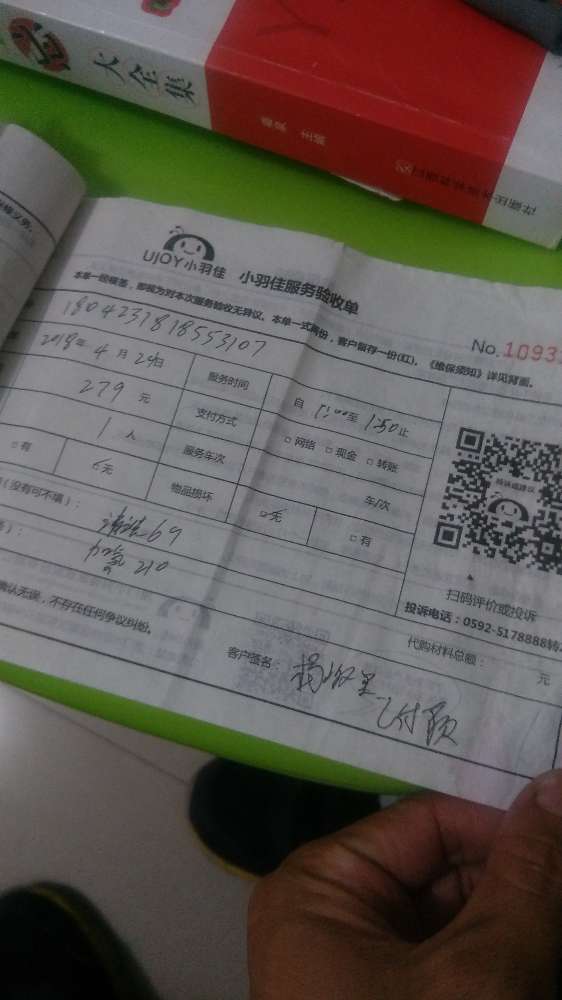 大全集
主编
UJOY小羽佳 小羽佳服务验收单
本单一经填签,即视为对本次服务验收无异议。本单一式两份,客户留存一份(红)。《维保须知》详见背面。
No.1093
1804231818553107
2018年 4月 24日 服务时间 自 11:00至 1:50止
279 元 支付方式 □网络 □现金 □转账
1 人 服务车次 车/次
□有 □无 物品损坏 □无 □有
(没有可不填):
清洗69
加氟 210
确认无误,不存在任何争议纠纷。
扫码评价或投诉
投诉电话:0592-5178888转
代购材料总额: 元
客户签名:
已付款